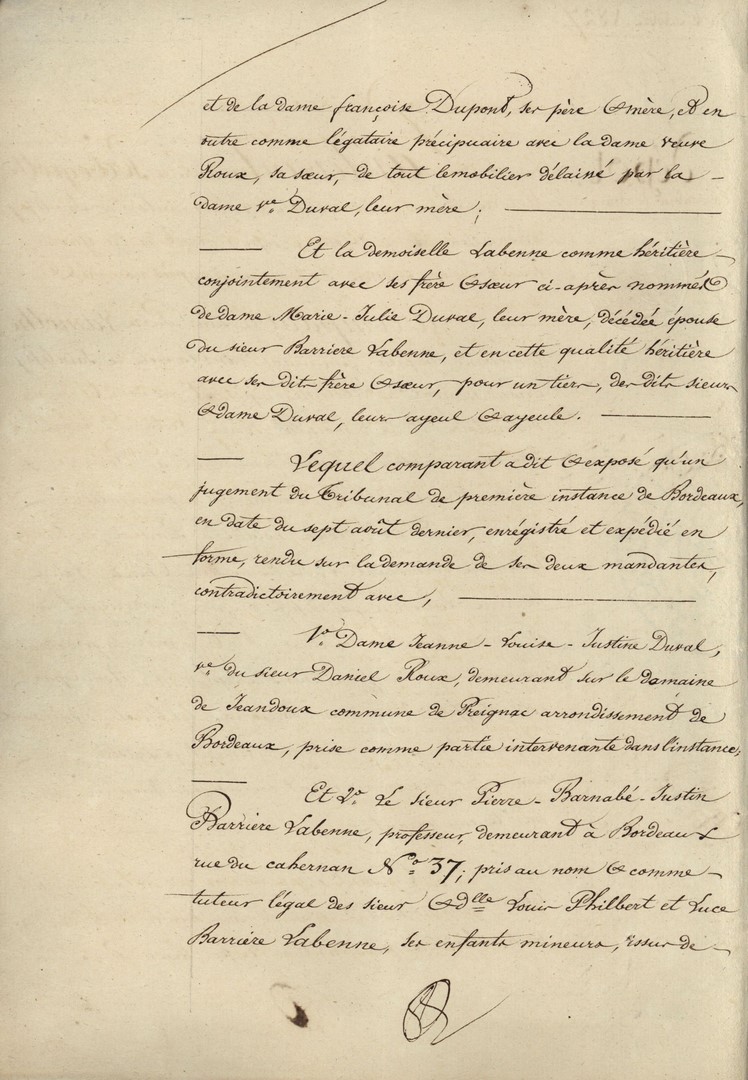 et de la dame françoise Dupont, ses père & mère, et en
outre comme légataire précipuaire avec la dame veuve
Roux, sa sœur, de tout le mobilier délaissé par la
dame ve. Duval, leur mère;
Et la demoiselle Labenne comme héritière
conjointement avec ses frère & sœur ci-après nommés
de dame Marie-Julie Duval, leur mère, décédée épouse
du sieur Barriere Labenne, et en cette qualité héritière
avec ses dits frère & sœur, pour un tiers, des dits sieur
& dame Duval, leurs ayeul & ayeule.
Lequel comparant a dit & exposé qu'un
jugement du Tribunal de première instance de Bordeaux,
en date du sept août dernier, enrégistré et expédié en
forme, rendu sur la demande de ses deux mandantes,
contradictoirement avec,
1o. Dame Jeanne-Louise-Justine Duval,
ve. du sieur Daniel Roux, demeurant sur le domaine
de Jeandoux commune de Preignac arrondissement de
Bordeaux, prise comme partie intervenante dans l'instance;
Et 2o. Le sieur Pierre-Barnabé-Justin
Barriere Labenne, professeur, demeurant à Bordeaux
rue du cahernan No. 37; pris au nom & comme
tuteur légal des sieur & dlle Louis Philbert et Luce
Barriére Labenne, ses enfants mineurs, issus de